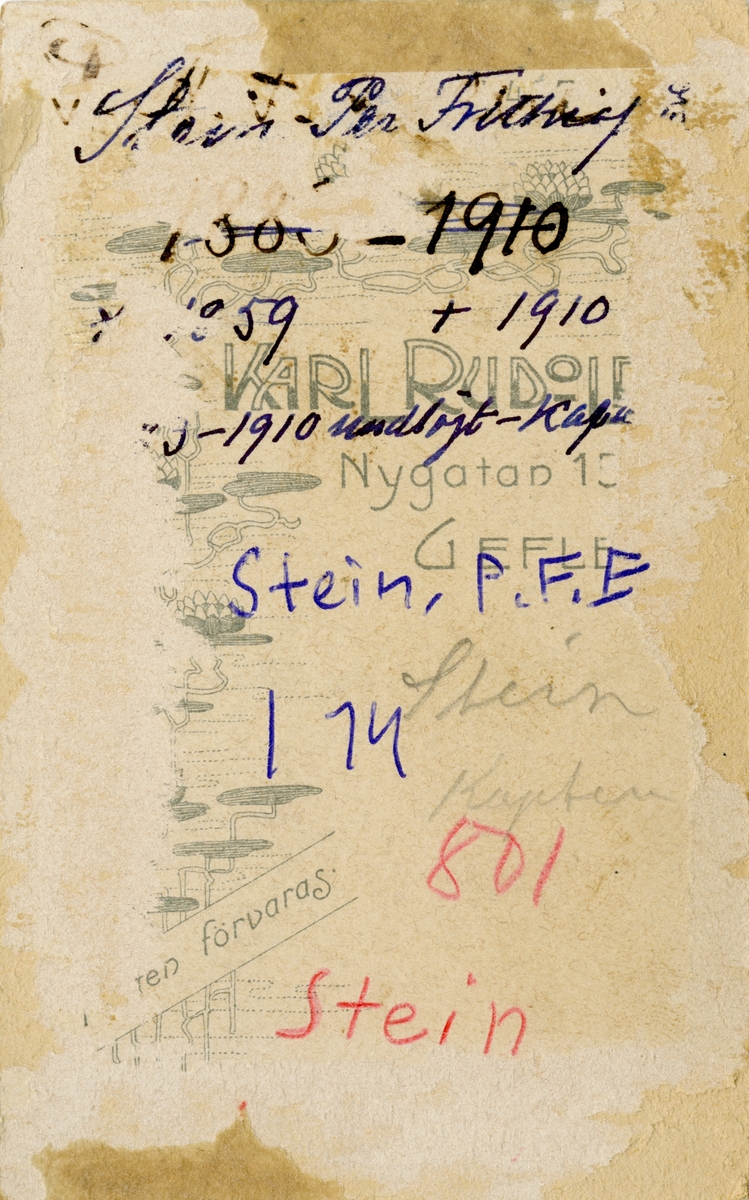 Stein - Per Frithiof
- 1910
59 + 1910
KARL RUDOLF
- 1910 undlöjt - Kapt
Nygatan 13
GEFLE
Stein, P.F.E
Stein
1 74
Kapten
801
förvaras.
Stein